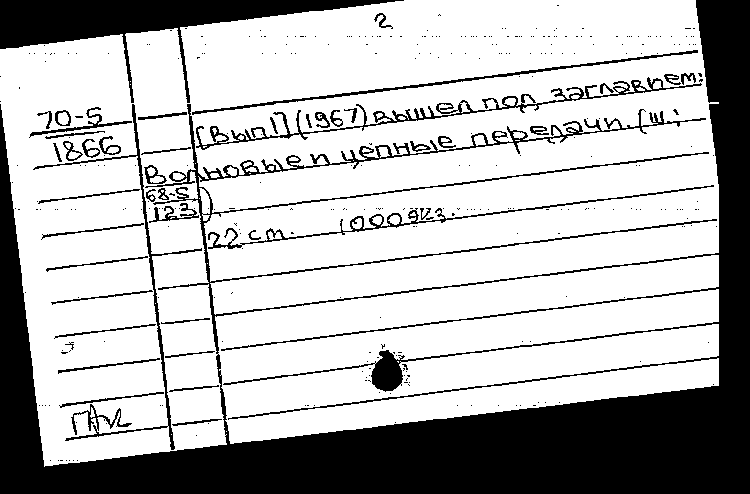 2
70-5
1866
[Вып.1] (1967) вышел под заглавием:
Волновые и цепные передачи. (Ш.;
68-5
123)
22 cm. 1000 экз.